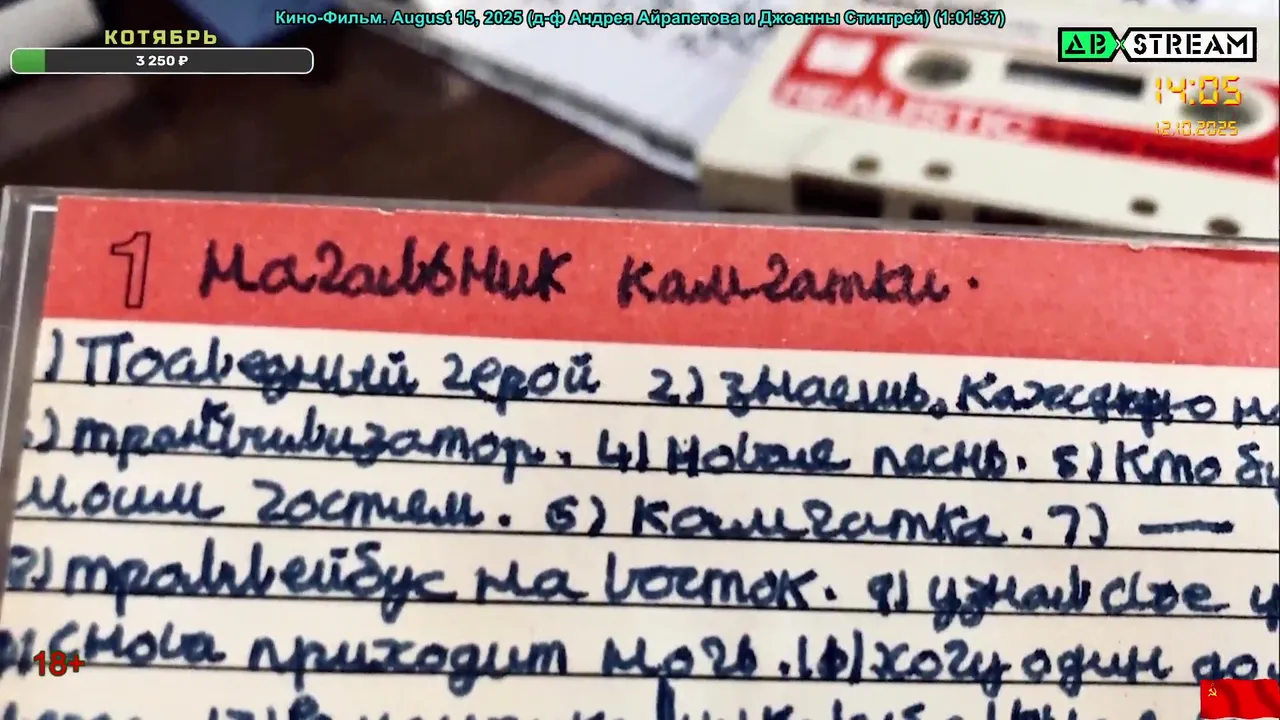 Кино-Фильм. August 15, 2025 (д-ф Андрея Айрапетова и Джоанны Стингрей) (1:01:37)
КОТЯБРЬ
3 250 ₽
АВxSTREAM
14:05
12.10.2025
REALISTIC
1 Начальник Камчатки.
1) Последный герой 2) Знаешь, каждую
) транквилизатор. 4) Новые песнь. 5) Кто
моим гостем. 6) Камчатка. 7) —
8) троллейбус на восток. 9) узнал свое
Снова приходит ночь. 10) хочу один
18+